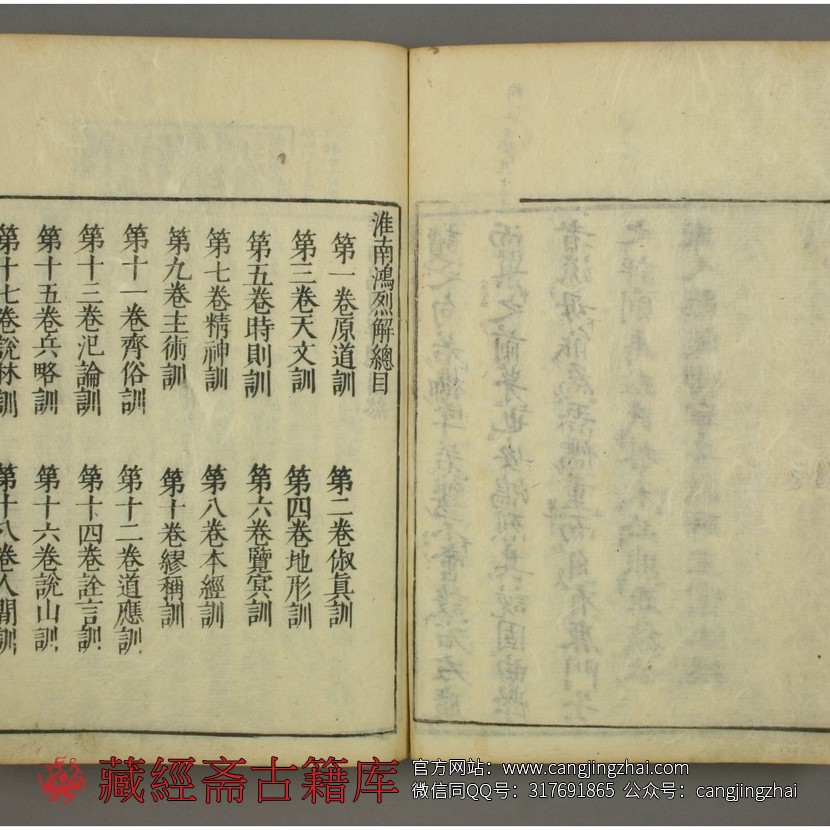 淮南鴻烈解總目
第一卷原道訓
第二卷俶真訓
第三卷天文訓
第四卷地形訓
第五卷時則訓
第六卷覽冥訓
第七卷精神訓
第八卷本經訓
第九卷主術訓
第十卷繆稱訓
第十一卷齊俗訓
第十二卷道應訓
第十三卷氾論訓
第十四卷詮言訓
第十五卷兵略訓
第十六卷說山訓
第十七卷說林訓
第十八卷人間訓
藏經斋古籍库
官方网站：www.cangjingzhai.com
微信同QQ号：317691865 公众号：cangjingzhai